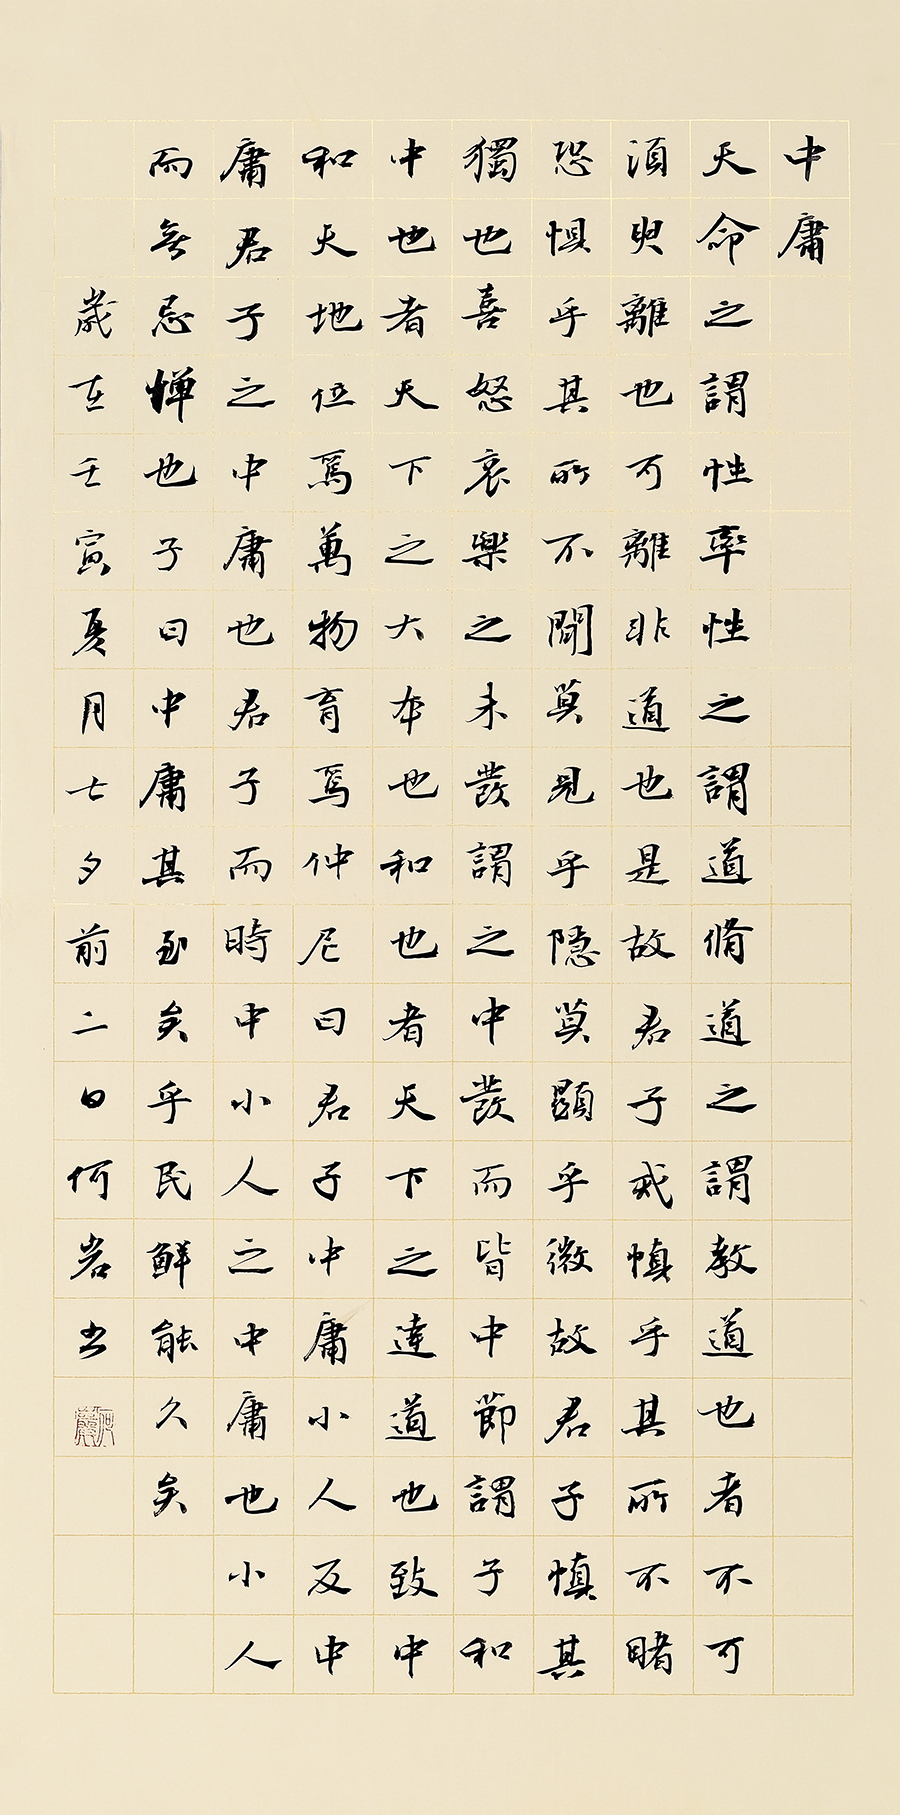 中庸
天命之謂性率性之謂道脩道之謂教道也者不可
須臾離也可離非道也是故君子戒慎乎其所不睹
恐惧乎其所不聞莫見乎隱莫顯乎微故君子慎其
獨也喜怒哀樂之未發謂之中發而皆中節謂子和
中也者天下之大本也和也者天下之達道也致中
和天地位焉萬物育焉仲尼曰君子中庸小人反中
庸君子之中庸也君子而時中小人之中庸也小人
而無忌憚也子曰中庸其至矣乎民鮮能久矣
歲在壬寅夏月七夕前二日何岩书